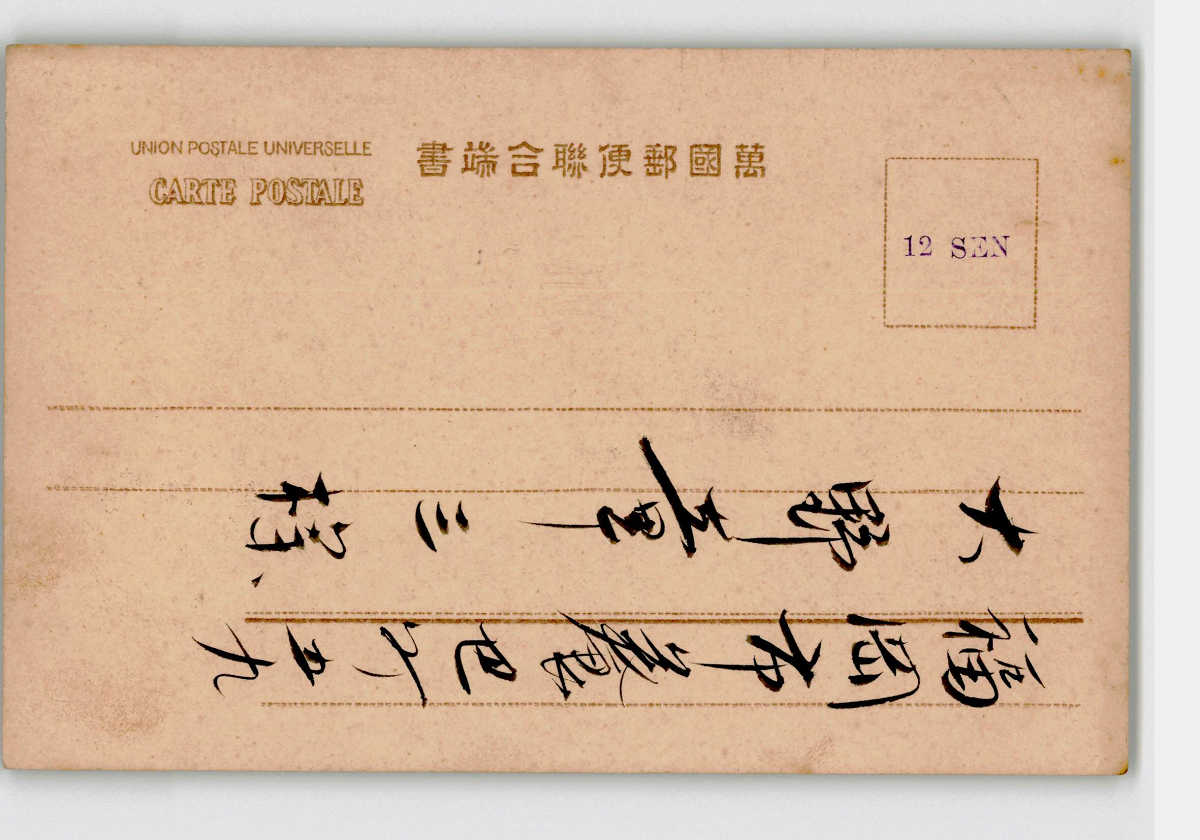 UNION POSTALE UNIVERSELLE
CARTE POSTALE
萬國郵便聯合端書
12 SEN
福岡市養巴町五九
大野章三様